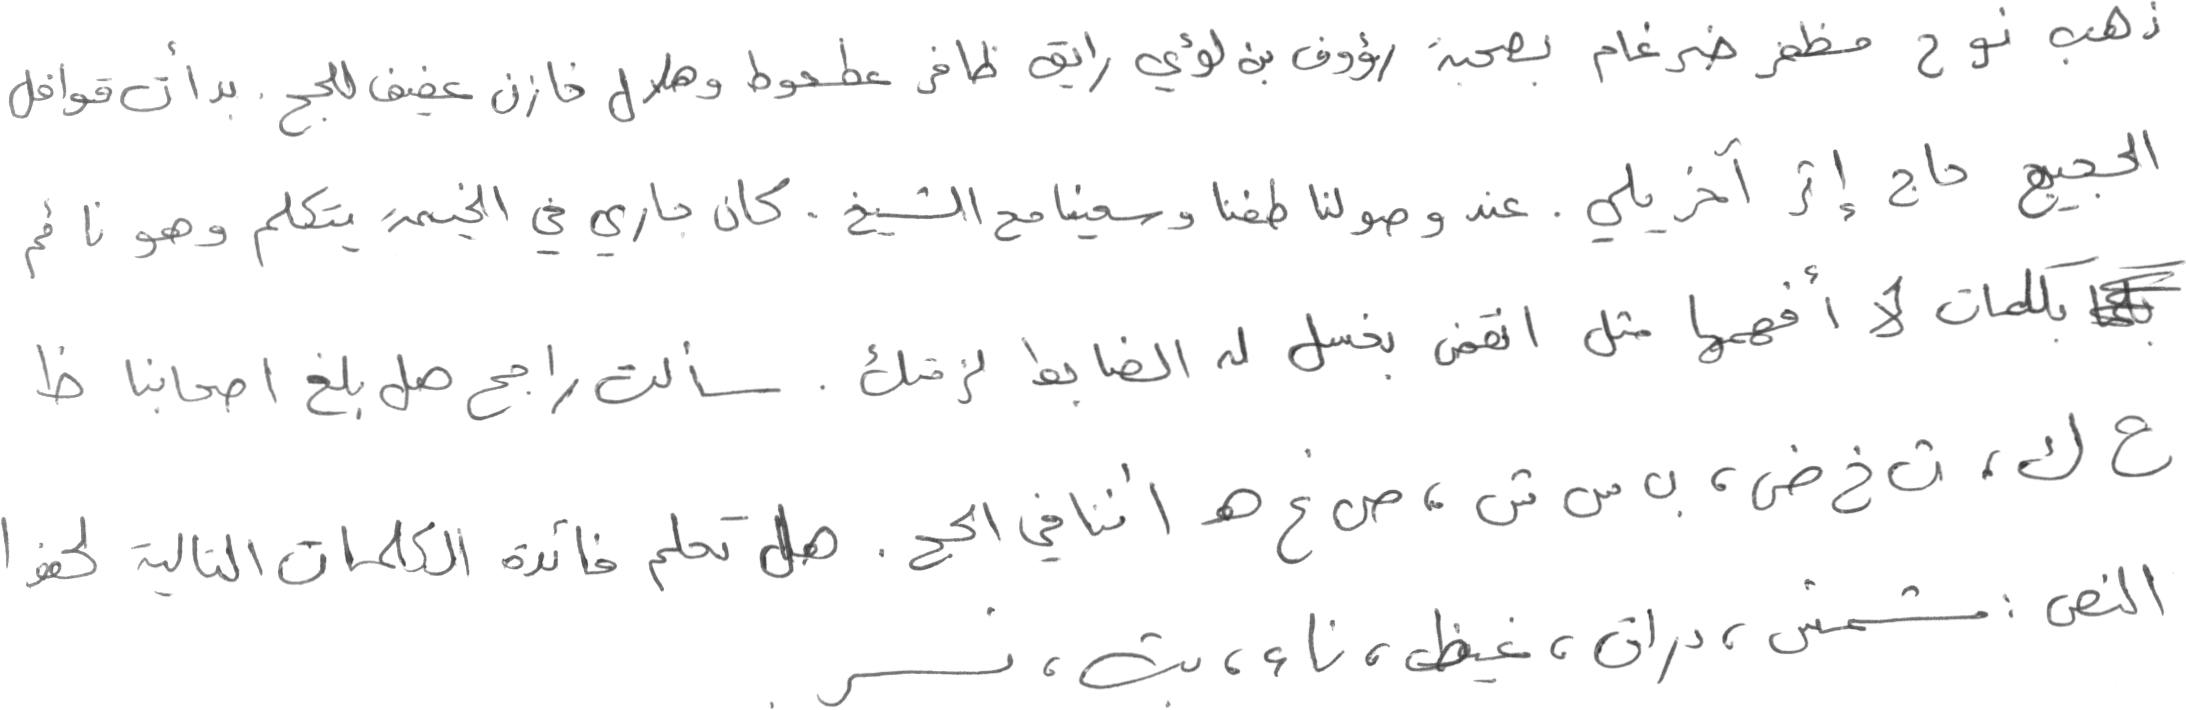 ذهب نوح مظفر ضرغام بصحبة رؤوف بن لؤي رايق ظافر عطعوط وهلال خازن عفيف للحج . بدأت قوافل
الحجيج حاج إثر آخر يلي . عند وصولنا طفنا وسعينا مع الشيخ . كان جاري في الخيمة يتكلم وهو نائم
بكلمات لا أفهمها مثل انقض بغسل له الضابط لزقتك . سألت راجح هل بلغ اصحابنا ظ
ع ك ، ت خ ض ، ب س ش ، ص غ هـ اثنا في الحج . هل تعلم فائدة الكلمات التالية لهذا
النص : مشمش ، دراق ، غيظ ، ناء ، بث ، نسر .